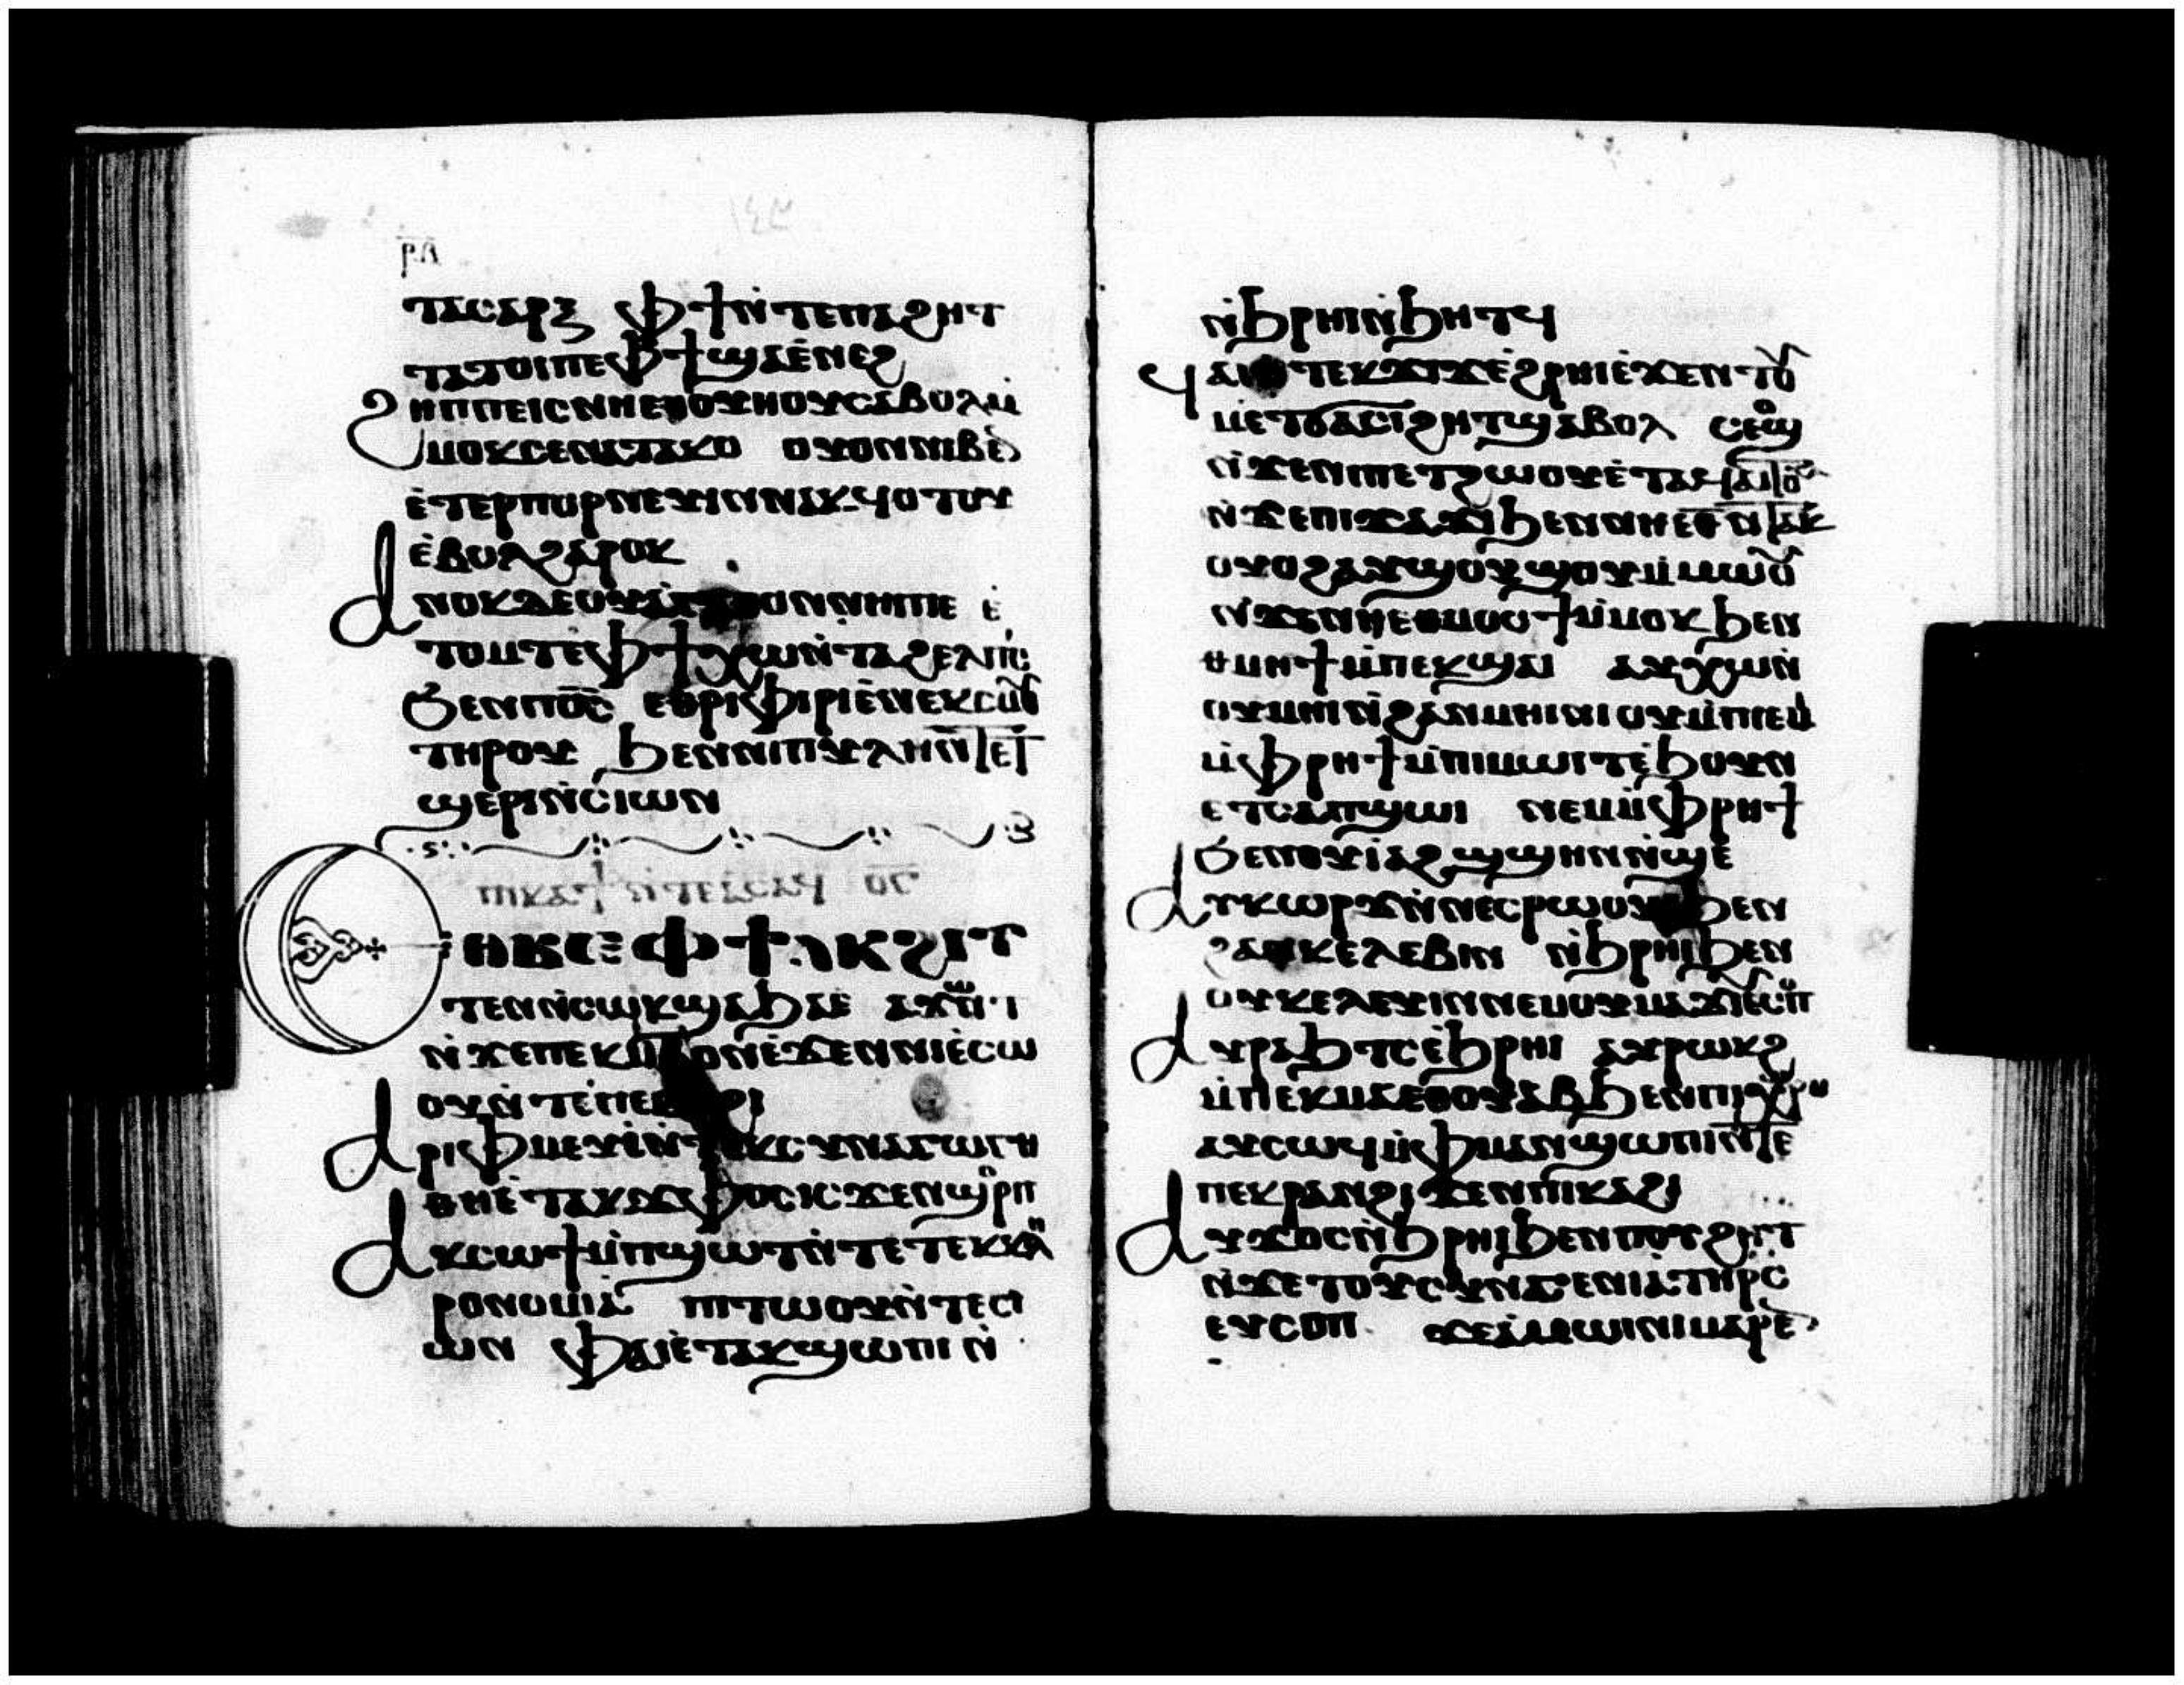 ⲣⲗ
ⲧⲁⲥⲁⲣⲝ ⲫϯ ⲛ̀ⲧⲉ ⲡⲁϩⲏⲧ
ⲧⲁⲧⲟⲓ ⲡⲉ ⲫϯ ϣⲁ ⲉ̀ⲛⲉϩ
ϩⲏⲡⲡⲉ ⲓⲥ ⲛⲏ ⲉⲑⲟⲩⲏⲟⲩ ⲥⲁⲃⲟⲗ ⲙ̀
ⲙⲟⲕ ⲥⲉⲛⲁⲧⲁⲕⲟ ⲟⲩⲟⲛ ⲛⲓⲃⲉ̅
ⲉ̀ⲧⲉⲣⲡⲟⲣⲛⲉⲩⲓⲛ ⲛⲁⲕϥⲟⲧⲟⲩ
ⲉ̀ⲃⲟⲗ ϩⲁⲣⲟⲕ
ⲁⲛⲟⲕ ⲇⲉ ⲟⲩⲁ̀ⲅⲁⲑⲟⲛ ⲛⲏⲓ ⲡⲉ ⲉ̀
ⲧⲟⲙⲧ ⲉ̀ⲫϯ ⲭⲱ ⲛ̀ⲧⲁϩⲉⲗⲡⲓⲥ
ϧⲉⲛ ⲡⲟ̅ⲥ̅ ⲉⲑⲣⲓⲫⲓⲣⲓ ⲉ̀ⲛⲉⲕⲥⲙⲟⲩ
ⲧⲏⲣⲟⲩ ϧⲉⲛ ⲛⲓⲡⲩⲗⲏ ⲛ̅ⲧⲉ ⲧ
ϣⲉⲣⲓ ⲛ̀ⲥⲓⲱⲛ
ⲡⲓⲕⲁϯ ⲛ̀ⲧⲉ ⲁ̀ⲥⲁϥ ⲟ̅ⲅ̅
ⲉⲑⲃⲉ ⲟⲩ ⲫϯ ⲁⲕϩⲓⲧ
ⲧⲉⲛ ⲛ̀ⲥⲱⲕ ϣⲁ ϧⲁⲉ ⲁϥϫⲱⲛⲧ
ⲛ̀ϫⲉ ⲡⲉⲕⲙ̀ⲃⲟⲛ ⲉ̀ϫⲉⲛ ⲛⲓⲉ̀ⲥⲱ
ⲟⲩ ⲛ̀ⲧⲉ ⲡⲉⲕⲟϩⲓ
ⲁⲣⲓⲫⲙⲉⲩⲓ̀ ⲛ̀ⲧⲉⲕⲥⲩⲛⲁⲅⲱⲅⲏ
ⲑⲏ ⲉ̀ⲧⲁⲕϫⲫⲟⲥ ⲓⲥϫⲉⲛ ϣⲟⲣⲡ
ⲁⲕⲥⲱϯ ⲙ̀ⲡϣⲱⲧ ⲛ̀ⲧⲉ ⲧⲉⲕⲕⲗⲏ
ⲣⲟⲛⲟⲙⲓⲁ ⲡⲓⲧⲱⲟⲩ ⲛ̀ⲧⲉ ⲥⲓ
ⲱⲛ ⲫⲁⲓ ⲉ̀ⲧⲁⲕϣⲱⲡⲓ ⲛ̀
ⲛ̀ϧⲣⲏⲓ ⲛ̀ϧⲏⲧϥ
ϥⲁⲓ ⲛ̀ⲧⲉⲕϫⲓϫ ⲉ̀ϩⲣⲏⲓ ⲉ̀ϫⲉⲛ ⲧⲟⲩ
ⲙⲉⲧϭⲁⲥⲓϩⲏⲧ ϣⲁⲃⲟⲗ ⲥⲉⲟϣ
ⲛ̀ϫⲉ ⲛⲓⲡⲉⲧϩⲱⲟⲩ ⲉ̀ⲧⲁϥⲁⲓⲧⲟⲩ
ⲛ̀ϫⲉ ⲡⲓϫⲁϫⲓ ϧⲉⲛ ⲛⲏ ⲉⲑ̅ⲛ̅ⲧⲁⲕ
ⲟⲩⲟϩ ⲁⲩϣⲟⲩϣⲟⲩ ⲙ̀ⲙⲱⲟⲩ
ⲛ̀ϫⲉ ⲛⲏ ⲉⲑⲙⲟⲥϯ ⲙ̀ⲙⲟⲕ ϧⲉⲛ
ⲑⲙⲏϯ ⲙ̀ⲡⲉⲕϣⲁⲓ ⲁⲩⲭⲱ ⲛ̀
ⲟⲩⲙⲏⲓⲛⲓ ϩⲁⲛⲙⲏⲓⲛⲓ ⲟⲩ ⲙ̀ⲡⲓⲉⲙ
ⲙ̀ⲫⲣⲏϯ ⲙ̀ⲡⲓⲙⲱⲓⲧ ⲉ̀ϧⲟⲩⲛ
ⲉⲧⲥⲁⲡϣⲱⲓ ⲛⲉⲙ ⲙ̀ⲫⲣⲏϯ
ϧⲉⲛ ⲟⲩⲓⲁϩϣϣⲏⲛ ⲛ̀ϣⲉ
ⲁⲩⲕⲱⲣϫ ⲛ̀ⲛⲉⲥⲣⲱⲟⲩ ϧⲉⲛ
ϩⲁⲛⲕⲉⲗⲉⲃⲓⲛ ⲛ̀ϧⲣⲏⲓ ϧⲉⲛ
ⲟⲩⲕⲉⲗⲉⲩⲓⲛ ⲛⲉⲙ ⲟⲩⲙⲁϫⲓ ⲉ̀ⲥⲟⲡ
ⲁⲩⲣⲁϧⲧⲥ ⲉ̀ϧⲣⲏⲓ ⲁⲩⲣⲱⲕϩ
ⲙ̀ⲡⲉⲕⲙⲁ ⲉⲑⲟⲩⲁⲃ ϧⲉⲛ ⲡⲓⲭⲣⲱⲙ
ⲁⲩⲥⲱϥ ⲙ̀ⲫⲙⲁⲛϣⲱⲡⲓ ⲛ̅ⲧⲉ
ⲡⲉⲕⲣⲁⲛ ϩⲓϫⲉⲛ ⲡⲓⲕⲁϩⲓ
ⲁⲩϫⲟⲥ ⲛ̀ϧⲣⲏⲓ ϧⲉⲛ ⲡⲟⲩϩⲏⲧ
ⲛ̀ϫⲉ ⲧⲟⲩⲥⲩⲛⲅⲉⲛⲓⲁ ⲧⲏⲣⲥ
ⲉⲩⲥⲟⲡ ϫⲉ ⲁ̀ⲙⲱⲓⲛⲓ ⲙⲁⲣⲉ̅